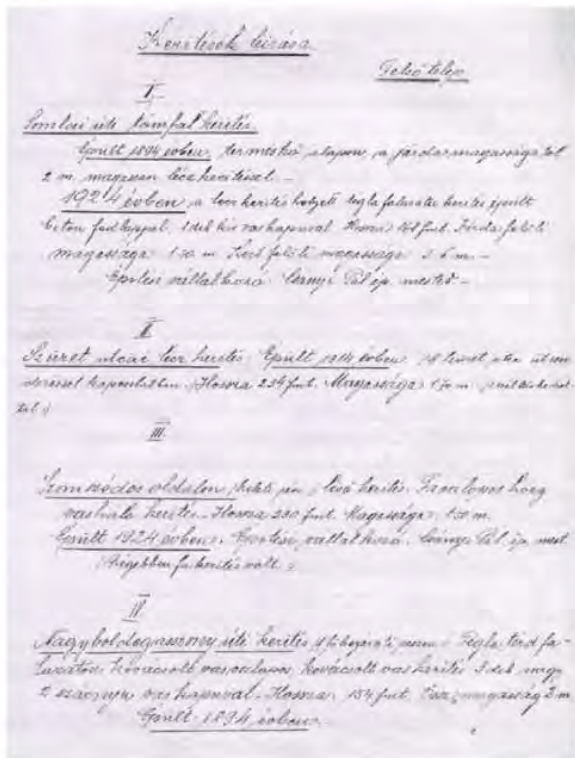 Kerítések leírása
Felső telep
I.
Somlói úti támfal kerítés.
Épült 1894 évben, termeskő alapon, a járda magasságától
2 m. magasan léczkerítéssel. –
1924 évben, a lécz kerítés helyett tégla falazatu kerítés épült
beton fedlappal, 1 deb kis vaskapuval. Hossza fm̃t. Járda felőli
magassága: m. Kert felőli magassága m. –
Építési vállalkozó: Csányi Pál ép. mester –
II.
Szüret utcai lécz kerítés. Épült 1914 évben, Szüret utca
kapcsolatban. Hossza 234 fm̃t. Magassága: m.
III.
Szomszédos oldalon, lévő kerítés. Faoszlopos horg
vasháló kerítés. Hossza 230 fm̃t. Magassága: m.
Épült 1924 évben. Építési vállalkozó: Csányi Pál ép. mest
Régebben fakerítés volt.
IV.
Nagyboldogasszony úti kerítés Tégla fa-
lazaton kovácsolt vasoszlopos, kovácsolt vas kerítés
2 szárnyu vas kapuval. Hossza: 154 fm̃t. magasság 2 m
Épült 1894 évben.